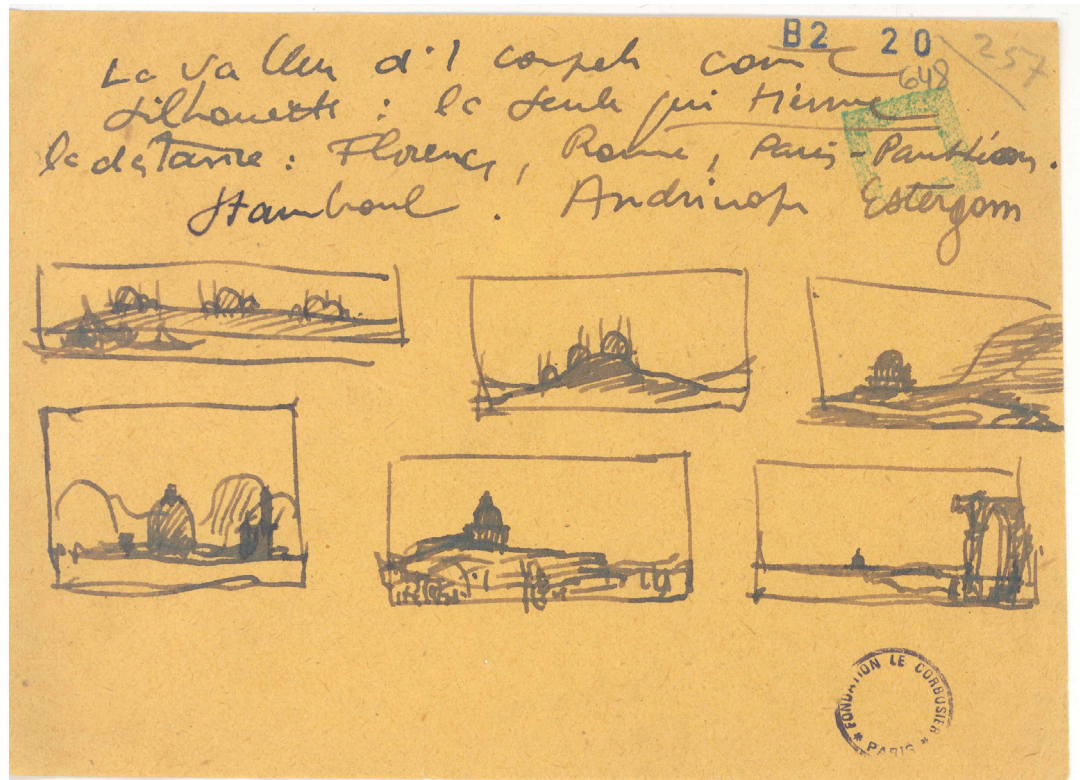 B2 20
257
648
La valeur d'1 coupole comme
silhouette : la seule qui tienne
la distance : Florence, Rome, Paris-Panthéon.
Stamboul. Andrinople Estergom
FONDATION LE CORBUSIER
* PARIS *